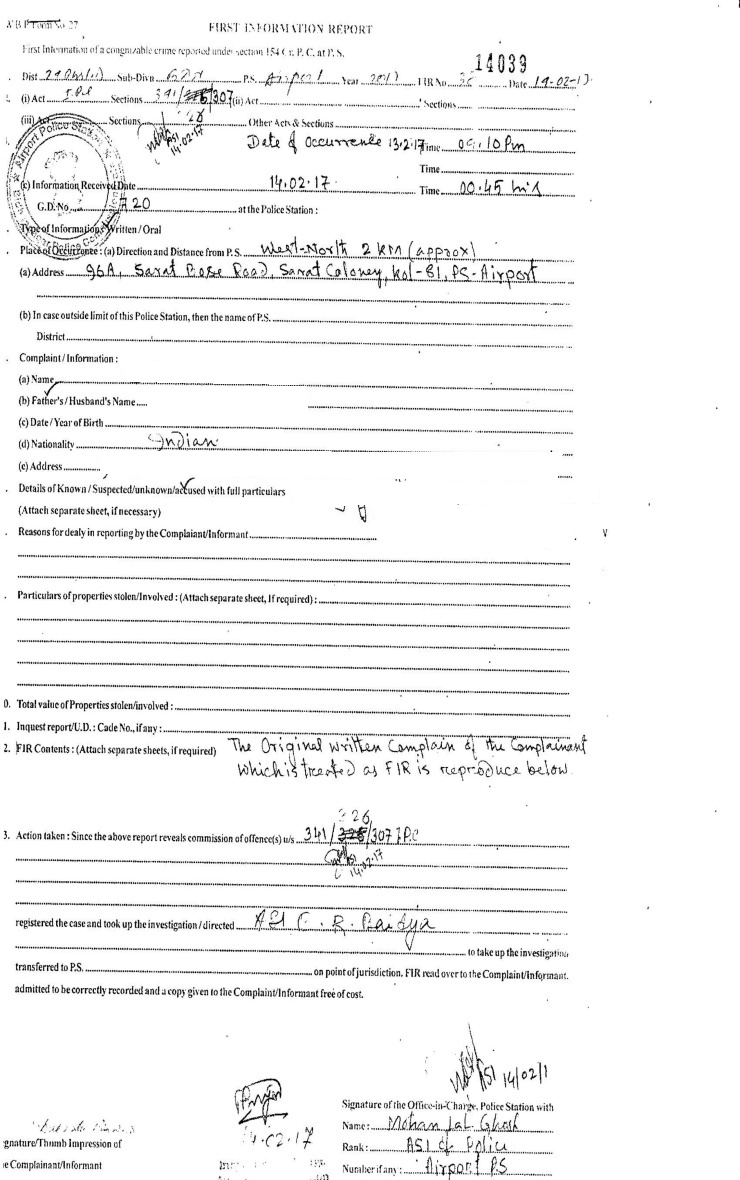 W B P Form No. 27
FIRST INFORMATION REPORT
First Information of a congnizable crime reported under section 154 Cr. P. C. at P. S.
14039
Dist Sub-Divn P.S. Airport Year 2017 FIR No Date 14-02-17
(i) Act I.P.C Sections 341/ /307 (ii) Act Sections
326
(iii) Act Sections Other Acts & Sections
ASI
14.02.17
Date of occurrence 13.2.17 Time 09.10 Pm
Time
(c) Information Received Date 14.02.17 Time 00.45 hrs
G.D. No. 720 at the Police Station :
Airport Police Station
Type of Information: Written / Oral
Place of Occurrence : (a) Direction and Distance from P.S. West-North 2 KM (approx)
(a) Address 96A, Sarat Bose Road, Sarat Coloney, Kol-81, PS-Airport
(b) In case outside limit of this Police Station, then the name of P.S.
District
Complaint / Information :
(a) Name
(b) Father's / Husband's Name
(c) Date / Year of Birth
(d) Nationality Indian
(e) Address
Details of Known / Suspected/unknown/accused with full particulars
(Attach separate sheet, if necessary)
Reasons for dealy in reporting by the Complaiant/Informant
Particulars of properties stolen/Involved : (Attach separate sheet, If required) :
0. Total value of Properties stolen/involved :
1. Inquest report/U.D. : Cade No., if any :
2. FIR Contents : (Attach separate sheets, if required) The Original written Complain of the Complainant
which is treated as FIR is reproduce below
326
3. Action taken : Since the above report reveals commission of offence(s) u/s 341/325/307 IPC
ASI
14.02.17
registered the case and took up the investigation / directed ASI C. R. Baidya
to take up the investigation
transferred to P.S. on point of jurisdiction. FIR read over to the Complaint/Informant.
admitted to be correctly recorded and a copy given to the Complaint/Informant free of cost.
ASI 14/02/1
Signature of the Office-in-Charge, Police Station with
14.02.17
Name : Mohan Lal Ghosh
gnature/Thumb Impression of
Rank : ASI of Police
e Complainant/Informant
Number if any : Airport PS